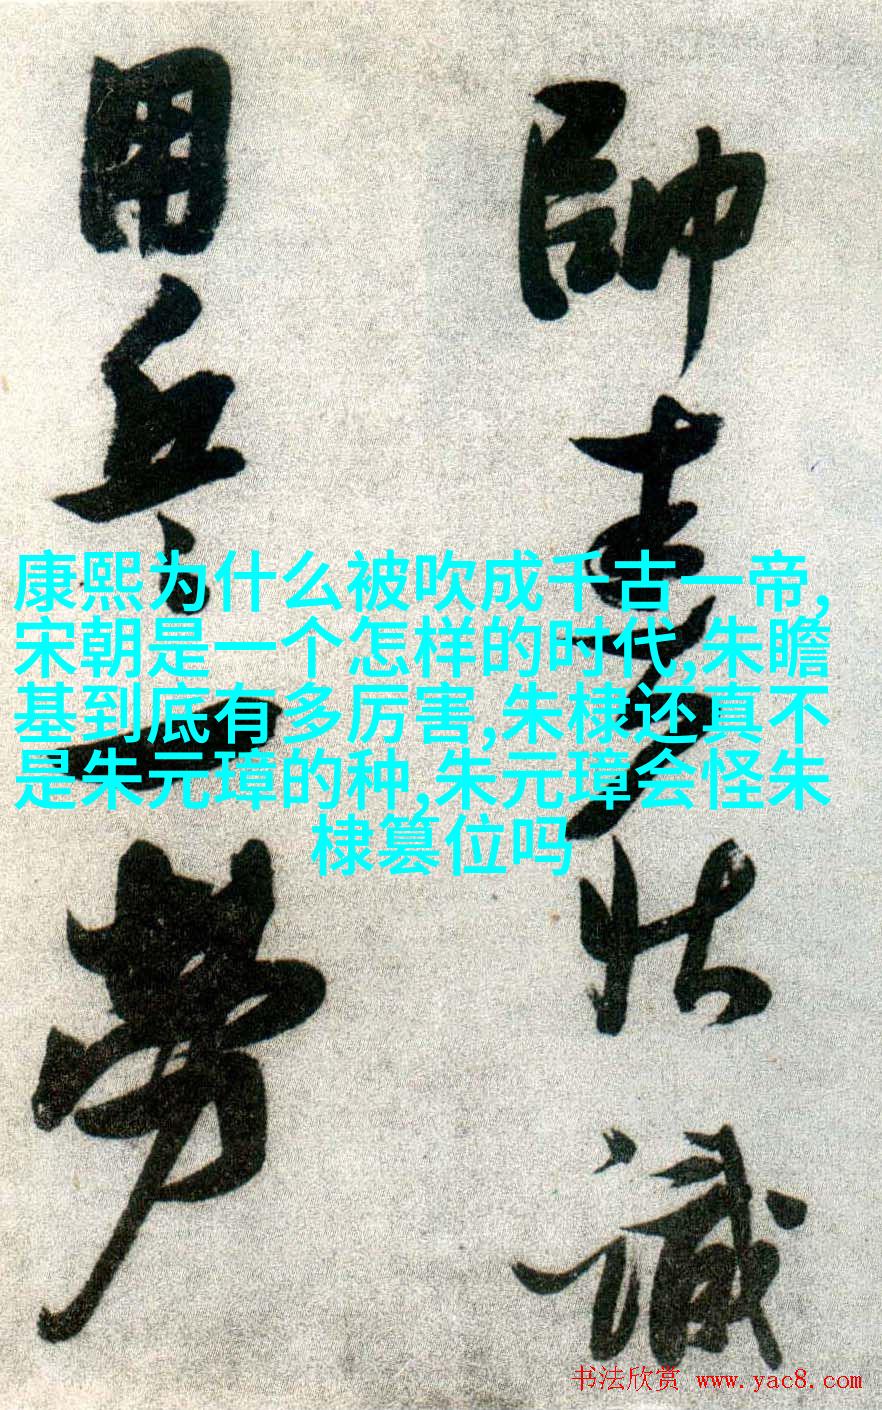 帥 壯識
用兵 一勞
康熙为什么被吹成千古一帝,
宋朝是一个怎样的时代,朱瞻
基到底有多厉害,朱棣还真不
是朱元璋的种,朱元璋会怪朱
棣篡位吗
书法欣赏 www.yac8.com